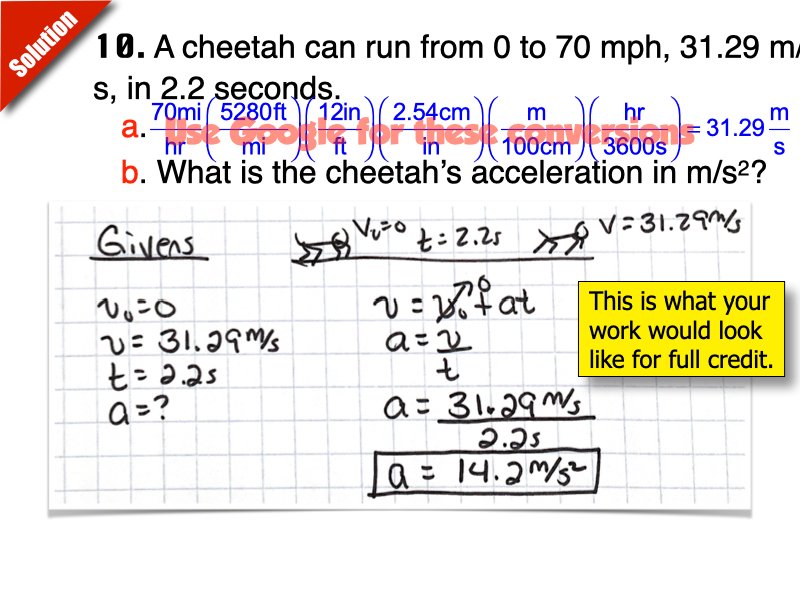 Solution
10. A cheetah can run from 0 to 70 mph, 31.29 m/
s, in 2.2 seconds.
a. 70mi/hr (5280ft/mi)(12in/ft)(2.54cm/in)(m/100cm)(hr/3600s) = 31.29 m/s
Use Google for these conversions
b. What is the cheetah's acceleration in m/s²?
Givens
V₀=0 t = 2.2s V = 31.29 m/s
v₀ = 0
v = 31.29 m/s
t = 2.2s
a = ?
v = v₀ + at
0
a = v/t
a = 31.29 m/s / 2.2s
a = 14.2 m/s²
This is what your
work would look
like for full credit.